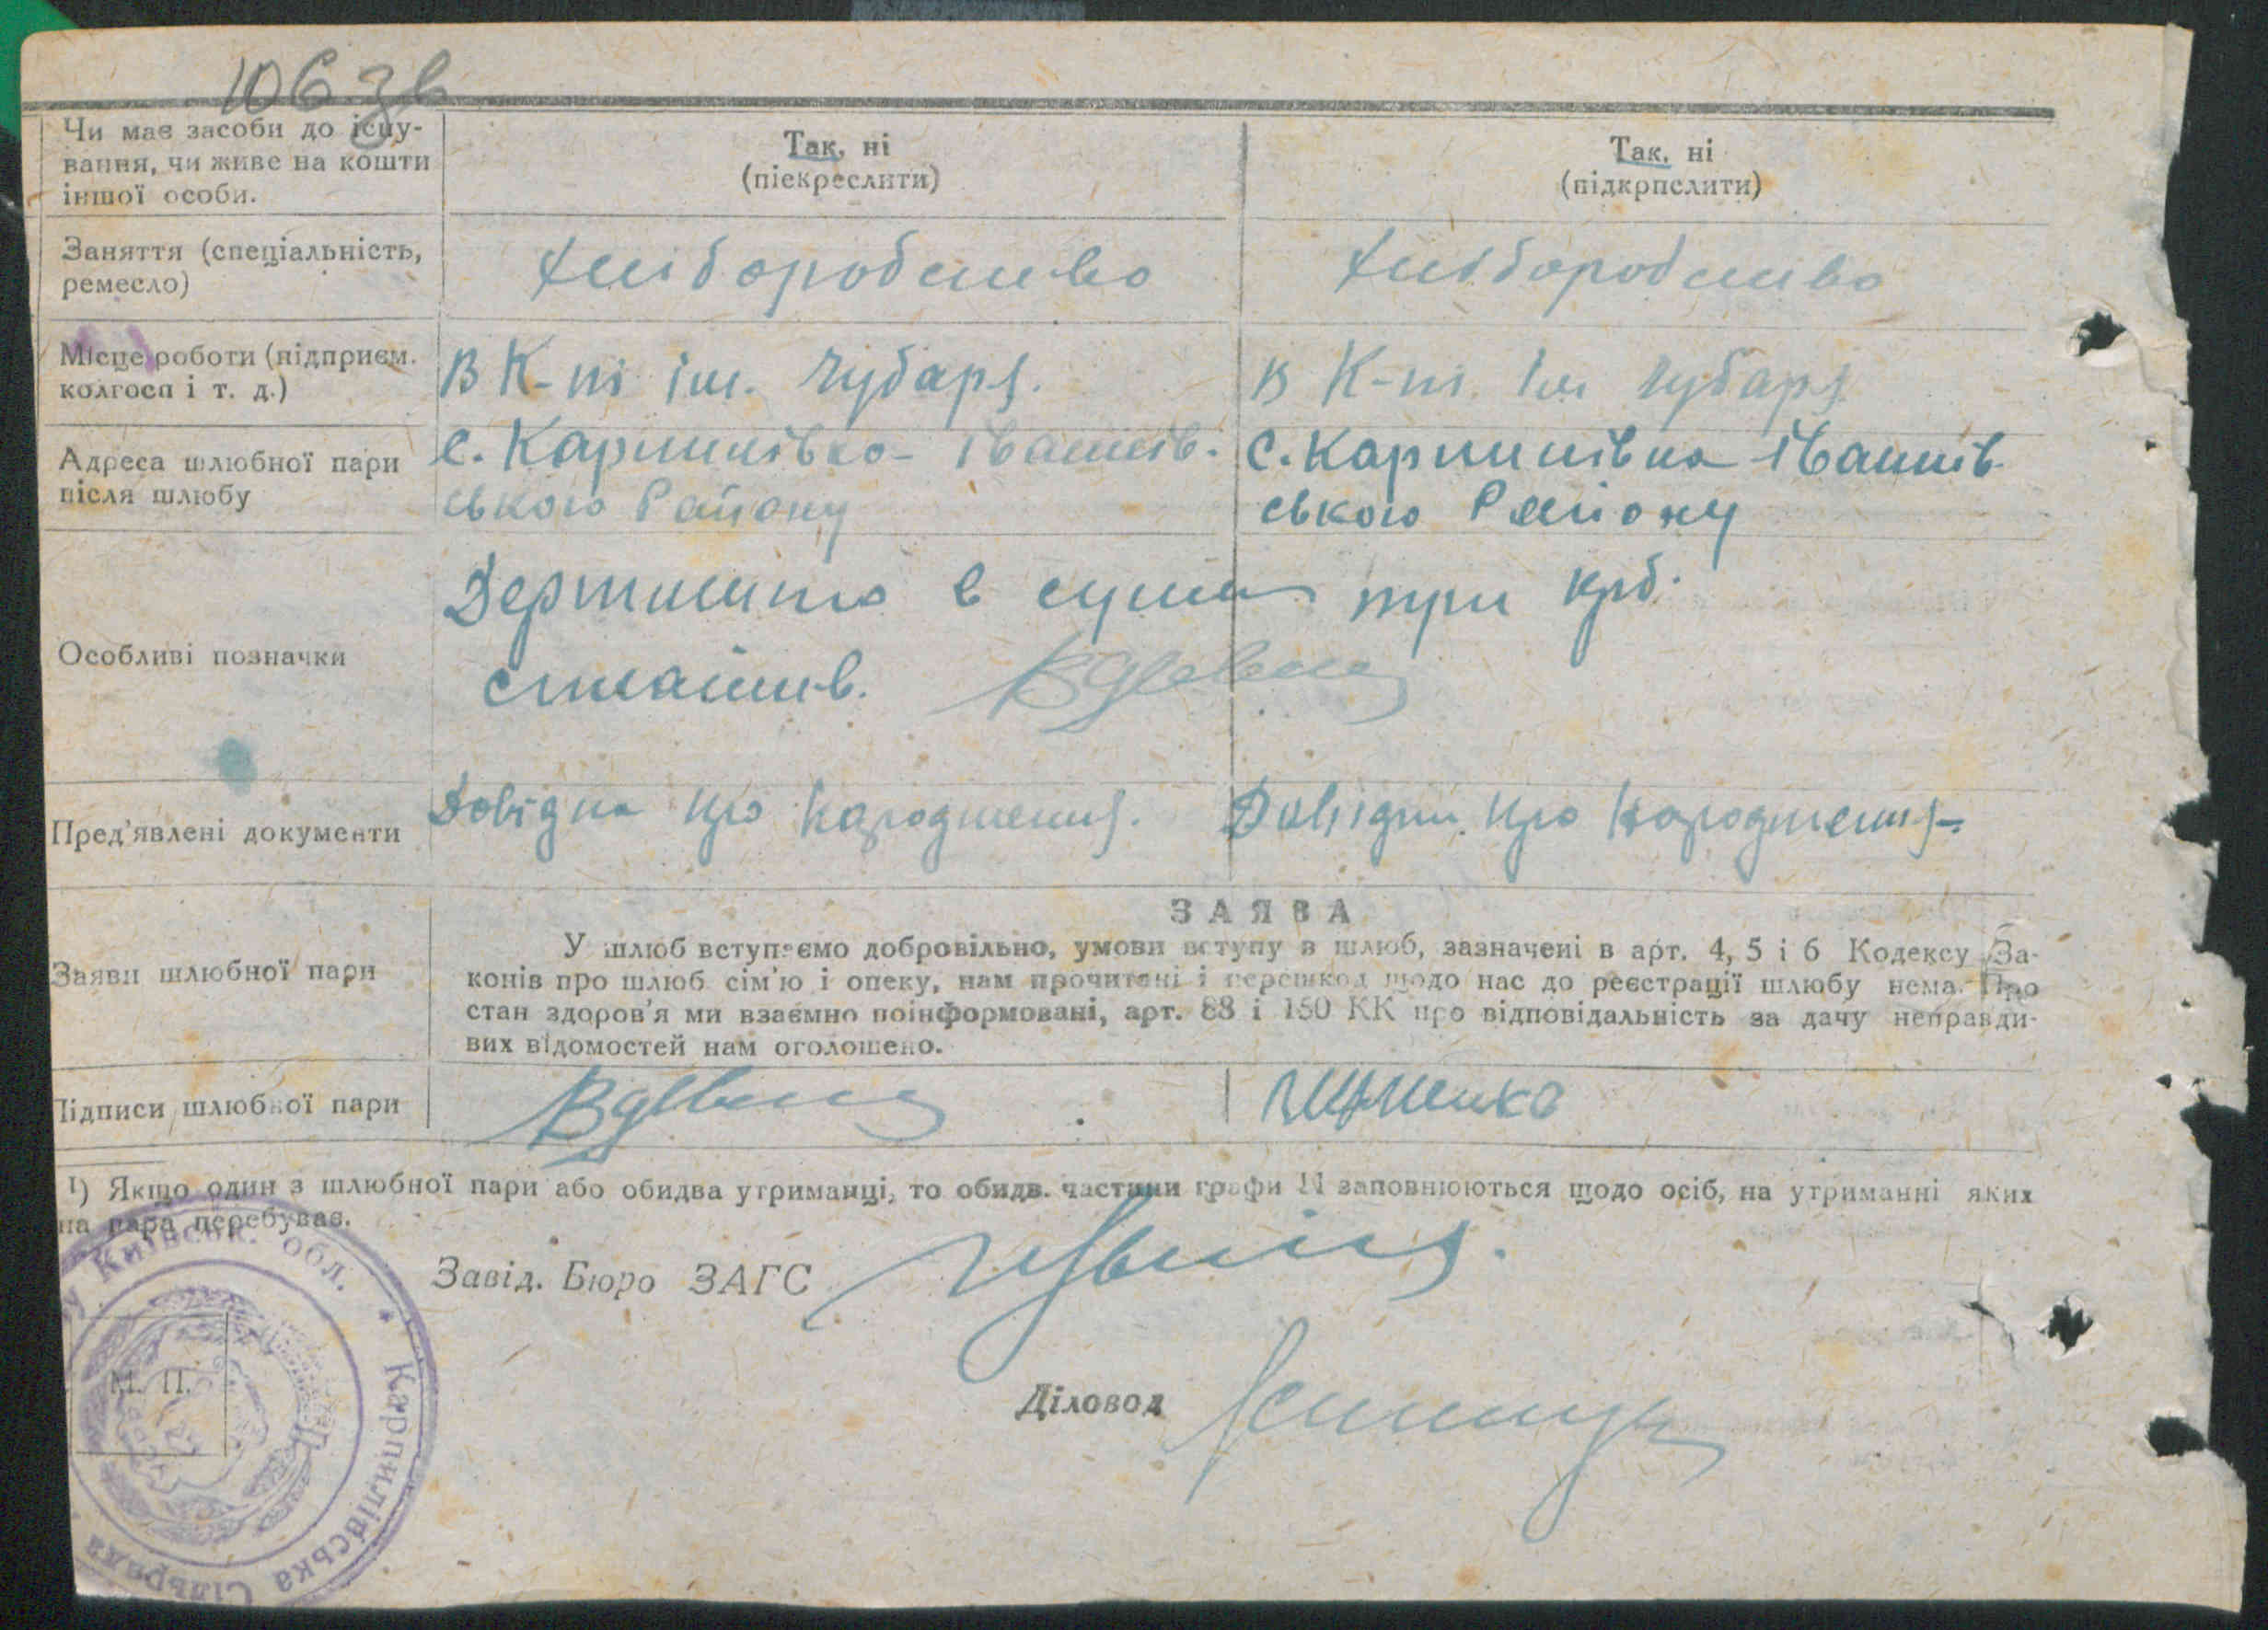 106 зв
Чи має засоби до існу-
вання, чи живе на кошти
іншої особи.
Так, ні
(піекреслити)
Так, ні
(підкрпслити)
Заняття (спеціальність,
ремесло)
Хліборобство
Хліборобство
Місце роботи (підприєм.
колгосп і т. д.)
В К-пі ім. Чубаря.
в К-пі ім Чубаря
Адреса шлюбної пари
після шлюбу
с. Карпилівка Іванків-
ського Району
с. Карпилівка Іванків-
ського Району
Особливі позначки
Держмито в сумі три крб.
сплатив.
Пред'явлені документи
Довідка про народження.
Довідка про народження
ЗАЯВА
Заяви шлюбної пари
У шлюб вступаємо добровільно, умови вступу в шлюб, зазначені в арт. 4, 5 і 6 Кодексу За-
конів про шлюб сім'ю і опеку, нам прочитані і перешкод щодо нас до реєстрації шлюбу нема. Про
стан здоров'я ми взаємно поінформовані, арт. 88 і 150 КК про відповідальність за дачу неправди-
вих відомостей нам оголошено.
Підписи шлюбної пари
1) Якщо один з шлюбної пари або обидва утриманці, то обидв. частини графи 11 заповнюються щодо осіб, на утриманні яких
на пара перебуває.
Завід. Бюро ЗАГС
Діловод
М. П.
Київськ. обл. * Карпилівська Сільрада